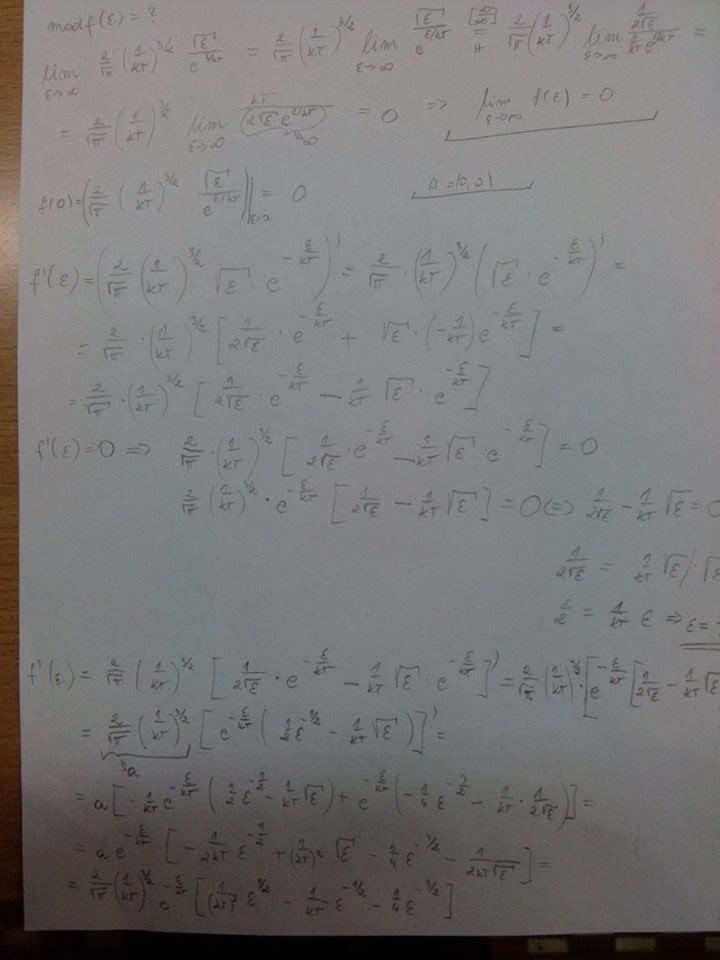 modf(ε) = ?
lim ε→∞ 2/√π (1/kT)^3/2 √ε/e^ε/kT = 2/√π (1/kT)^3/2 lim ε→∞ √ε/e^ε/kT [∞/∞] = H 2/√π (1/kT)^3/2 lim ε→∞ (1/2√ε)/(1/kT e^ε/kT) =
= 2/√π (1/kT)^3/2 lim ε→∞ kT/(2√ε e^ε/kT) →∞ = 0 ⇒ lim ε→∞ f(ε) = 0
f(0) = (2/√π (1/kT)^3/2 √ε/e^ε/kT)|ε=0 = 0 A = (0,0)
f'(ε) = (2/√π (1/kT)^3/2 √ε · e^-ε/kT)' = 2/√π · (1/kT)^3/2 (√ε · e^-ε/kT)' =
= 2/√π · (1/kT)^3/2 [1/2√ε · e^-ε/kT + √ε · (-1/kT) e^-ε/kT] =
= 2/√π · (1/kT)^3/2 [1/2√ε · e^-ε/kT - 1/kT √ε · e^-ε/kT]
f'(ε) = 0 ⇒ 2/√π · (1/kT)^3/2 [1/2√ε · e^-ε/kT - 1/kT √ε · e^-ε/kT] = 0
2/√π (1/kT)^3/2 · e^-ε/kT [1/2√ε - 1/kT √ε] = 0 ⇔ 1/2√ε - 1/kT √ε = 0
1/2√ε = 1/kT √ε /·√ε
1/2 = 1/kT ε ⇒ ε =
f'(ε) = 2/√π (1/kT)^3/2 [1/2√ε · e^-ε/kT - 1/kT √ε · e^-ε/kT]' = 2/√π (1/kT)^3/2 · [e^-ε/kT [1/2√ε - 1/kT √ε
= 2/√π (1/kT)^3/2 [e^-ε/kT (1/2 ε^-1/2 - 1/kT √ε)]' =
"a
= a [-1/kT e^-ε/kT (1/2 ε^-1/2 - 1/kT √ε) + e^-ε/kT (-1/4 ε^-3/2 - 1/kT · 1/2√ε)] =
= a e^-ε/kT [-1/2kT ε^-1/2 + 1/(kT)² √ε - 1/4 ε^-3/2 - 1/2kT√ε] =
= 2/√π (1/kT)^3/2 e^-ε/kT [1/(kT)² ε^1/2 - 1/kT ε^-1/2 - 1/4 ε^-3/2]